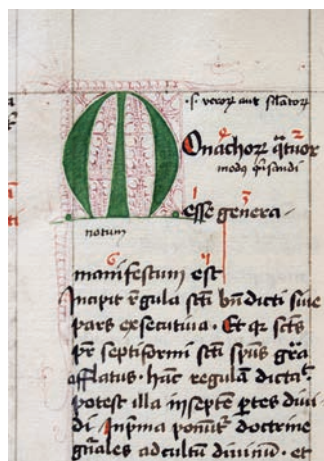 .s. veroꝝ aut ſilatoꝝ
Onachoꝝ qͣtuor
modꝰ
eſſe genera
notum
manifeſtum eſt
Incipit rͤgula ſcti bn̄dicti ſiue
pars executiua. Et qꝛ ſcts
pr̄ ſeptiformi ſcti ſpūs grā
afflatus. hāc regulā dictaᵗ.
poteſt illa in ſepteꝫ ꝑtes diui
di. In pͥma ponūtͬ doctrine
gn̄ales ad cultū diuinū. et